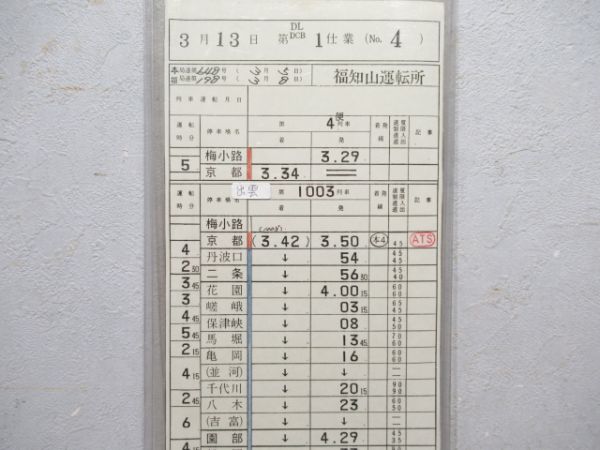 3月13日 第 DL DCB 1仕業 (No. 4 )
本局達乙648号 ( 3月 5日 )
198号 ( 3月 8日 ) 福知山運転所
列車運転月日
運転時分 停車場名 便 4列車 着 発 着発線 記事
梅小路 3.29
5 京都 3.34 ==
出雲
運転時分 停車場名 1003列車 着 発 着発線 記事
梅小路
京都 (3.42) 3.50 本4 45 ATS
4 丹波口 ↓ 54 45 45
2 30 二条 ↓ 56 30 45 40
3 45 花園 ↓ 4.00 15 60 60
3 嵯峨 ↓ 03 15 65 45
4 45 保津峡 ↓ 08 45 50
5 45 馬堀 ↓ 13 45 70 60
2 15 亀岡 ↓ 16 60 60
(並河) ↓ ↓
4 15 千代川 ↓ 20 15 90 90
2 45 八木 ↓ 23 45 50
(吉富) ↓ ↓
6 園部 ↓ 4.29 45 35
4